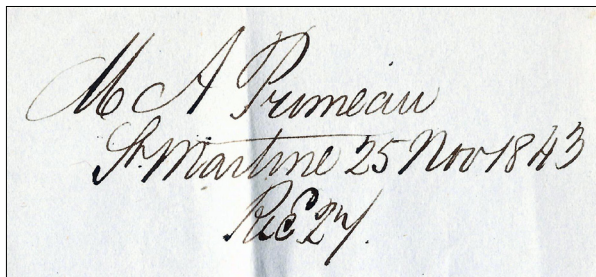 M A Primeau
St. Martine 25 Nov 1843